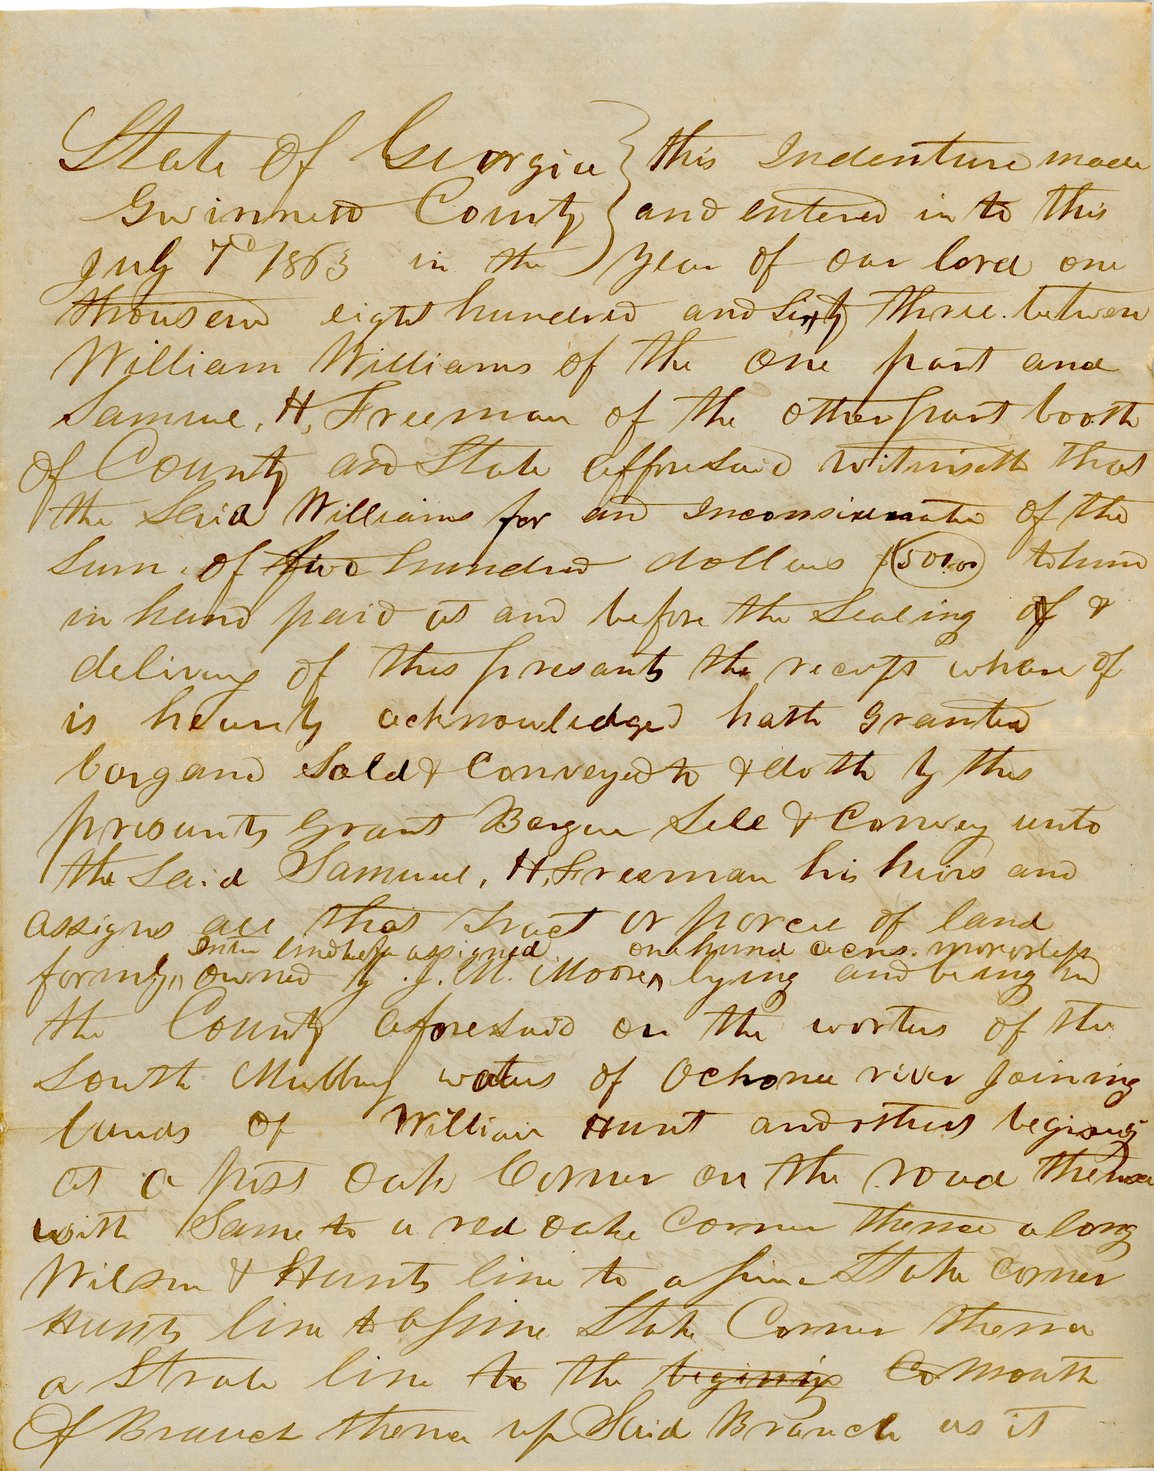 State of Georgia } this Indenture made
Gwinnett County } and entered in to this
July 7th 1863 in the } year of our lord one
thousend eight hundred and Sixty three. between
William Williams of the one part and
Samuel, H, Freeman of the other part booth
of County and State afforesaid witniseth that
the Said Williams for and Inconsideratio of the
Sum. of five hundred dollars $500.00 to him
in hand paid at and before the Sealing of &
delivery of this presants the recept whare of
is hearity acknowledged hath granted
bargand Sold & Conveyed to & doth by this
presants Grant Bargan Sell & Convey unto
the Said Samuel, H, Freeman his heirs and
assigns all that tract or parcel of land
one hund acres. more or less
formly owned by J. M. Moore lying and being in
the County aforesaid on the worters of the
South Mulbry waters of Ochonee river Joining
lands of William Hunt and others begining
at a post Oak Corner on the road thence
with Same to a red oake Corner thence along
Wilson & Hunts line to a pine Stake Corner
Hunts line to a pine Stake Corner thence
a Strate line to the begining mouth
Of Branch thence up Said Branch as it